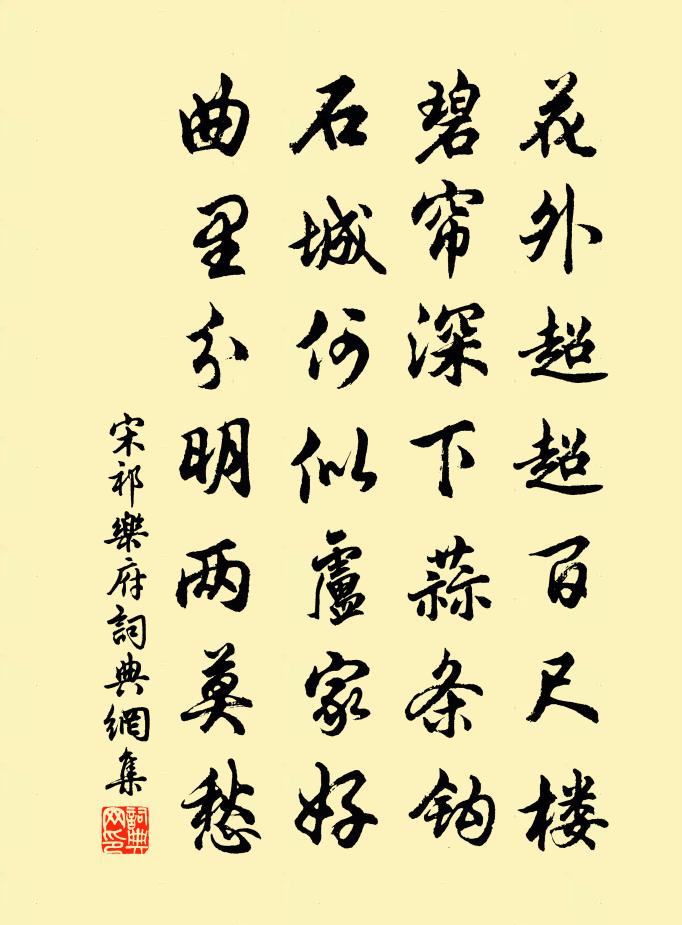 花外超超百尺楼
碧帘深下蒜条钩
石城何似盧家好
曲里分明两莫愁
宋祁樂府詞典網集
詞典网印